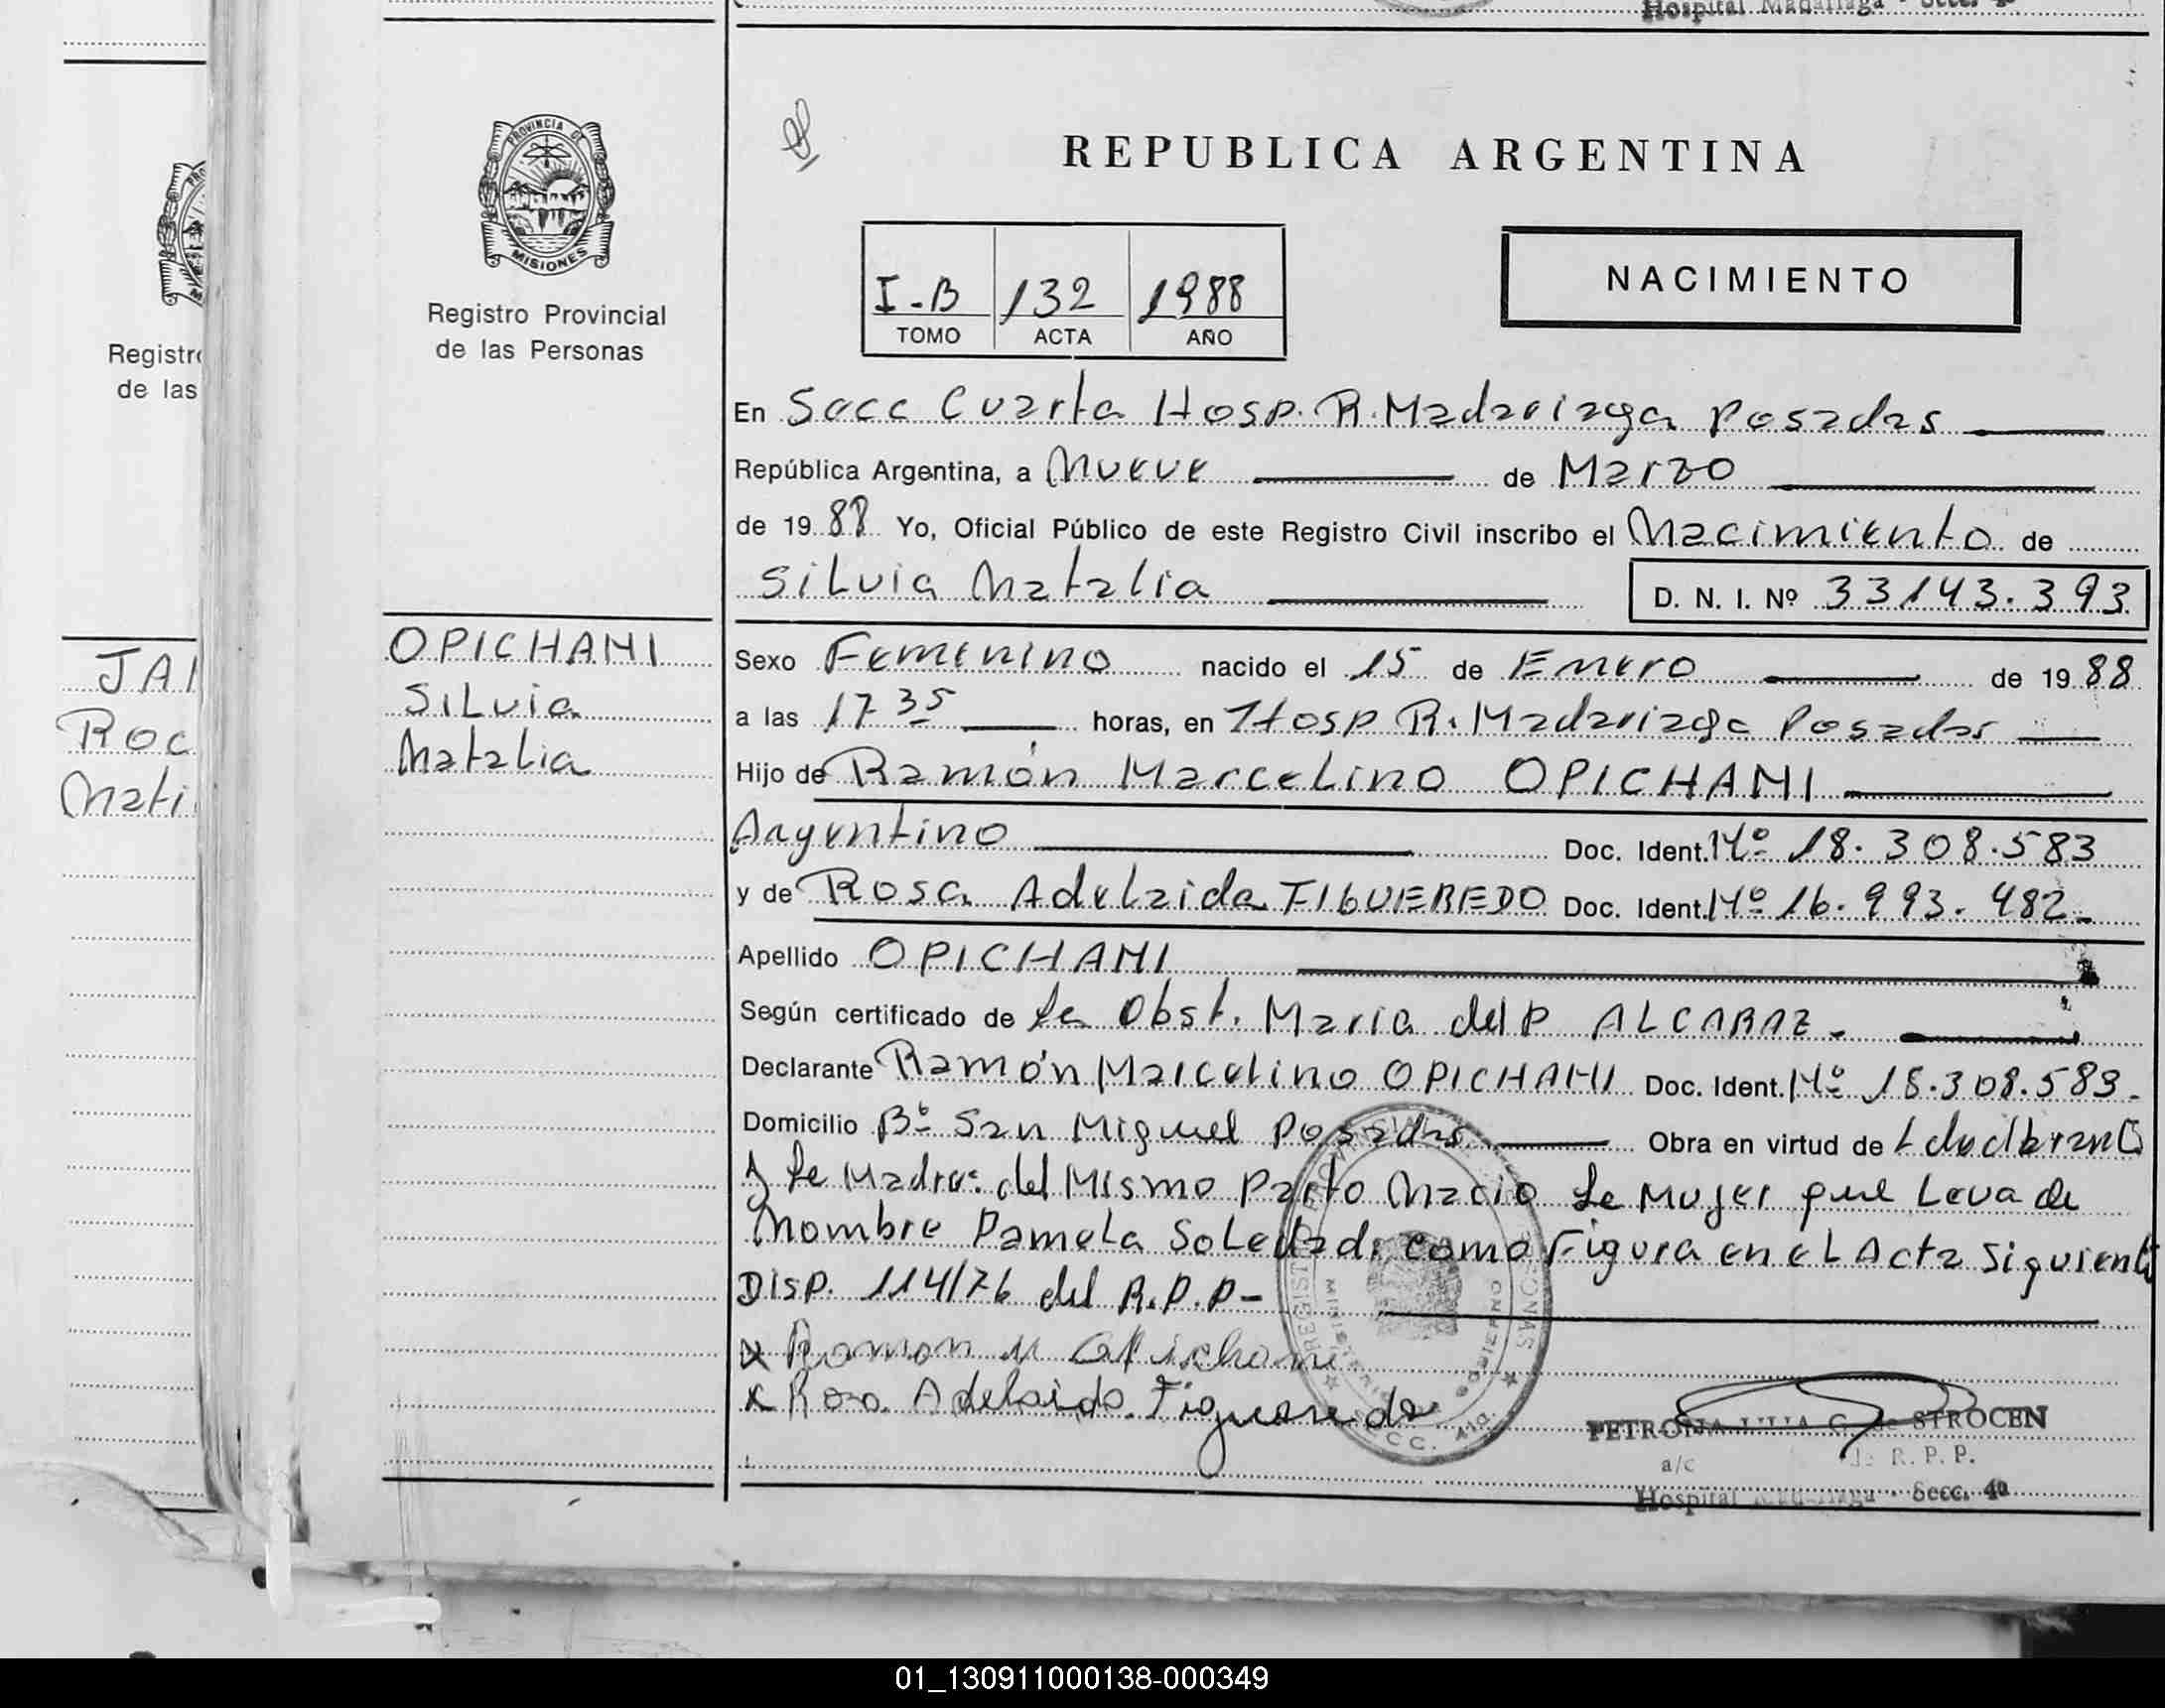 Hospital Madariaga - Secc. 4ª
PROVINCIA DE
MISIONES
Registro Provincial
de las Personas
REPUBLICA ARGENTINA
I-B 132 1988
TOMO ACTA AÑO
NACIMIENTO
En Secc Cuarta Hosp. R. Madariaga Posadas
República Argentina, a Nueve de Marzo
de 19 88 Yo, Oficial Público de este Registro Civil inscribo el Nacimiento de
Silvia Natalia D. N. I. Nº 33143.393
OPICHANI
Silvia
Natalia
Sexo Femenino nacido el 15 de Enero de 19 88
a las 17 35 horas, en Hosp R. Madariaga Posadas
Hijo de Ramón Marcelino OPICHANI
Argentino Doc. Ident. Nº 18.308.583
y de Rosa Adelaida FIGUEREDO Doc. Ident. Nº 16.993.482-
Apellido OPICHANI
Según certificado de la Obst. Maria del P ALCARAZ.
Declarante Ramón Marcelino OPICHANI Doc. Ident. Nº 18.308.583.
Domicilio Bº San Miguel Posadas Obra en virtud de
y la Madre. del Mismo Parto Nacio la Mujer que Leva de
Nombre Pamela Soledad. como Figura en el Acta Siguiente
Disp. 114/76 del R.P.P-
x Ramon M Opichani
x Rosa Adelaida Figueredo
PETRONA JULIA G. de STROCEN
a/c de R. P. P.
Hospital Madariaga - Secc. 4ª
Registr
de las
JA
Roc
Nati
01_130911000138-000349